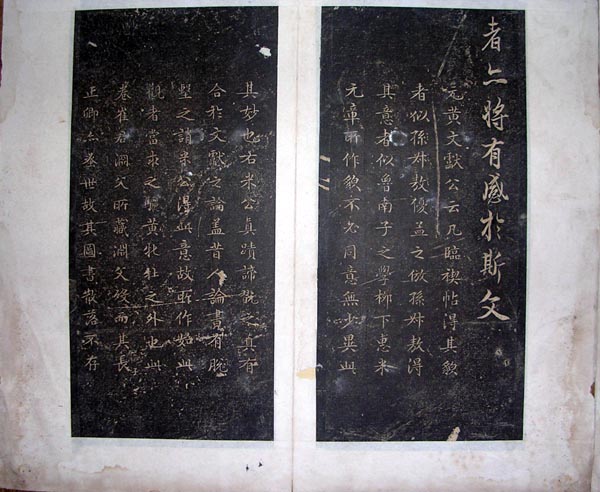 者亦將有感於斯文
元黃文獻公云凡臨禊帖得其貌
者似孫叔敖優孟之倣孫叔敖得
其意者似魯南子之學柳下惠米
元章所作貌不必同意無少異此
其妙也右米公真蹟諦觀之真有
合於文獻之論蓋昔人論書有脫
墼之誚米公得此意故所作如此
觀者當求之驪黃牝牡之外也此
卷崔君淵父所藏淵父歿而其長
正卿亦蚤世故其圖書散落不存